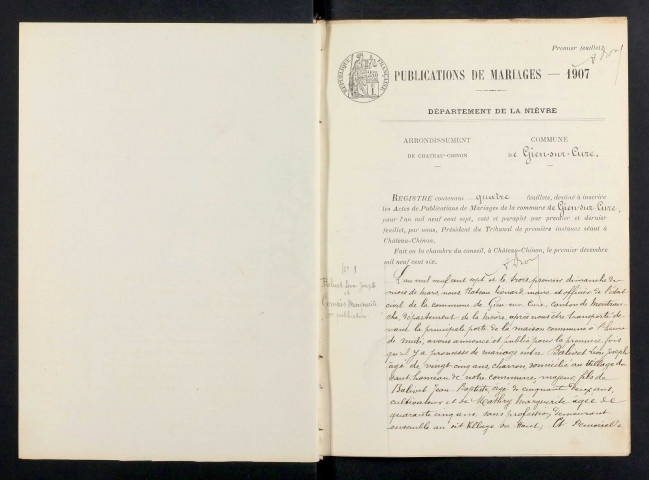 Premier feuillet
RÉPUBLIQUE FRANÇAISE
PUBLICATIONS DE MARIAGES — 1907
DÉPARTEMENT DE LA NIÈVRE
ARRONDISSEMENT
DE CHATEAU-CHINON
COMMUNE
DE Gien-sur-Cure.
REGISTRE contenant quatre feuillets, destiné à inscrire
les Actes de Publications de Mariages de la commune de Gien-sur-Cure,
pour l'an mil neuf cent sept, coté et paraphé par premier et dernier
feuillet, par nous, Président du Tribunal de première instance séant à
Château-Chinon.
Fait en la chambre du conseil, à Château-Chinon, le premier décembre
mil neuf cent six.
N° 1
Balivet Léon Joseph
et
Marguerite
1re publication
L'an mil neuf cent sept et le trois, premier dimanche du
mois de mars, nous Édouard, maire et officier de l'état
civil de la commune de Gien-sur-Cure, canton de Montsau-
che, département de la Nièvre, après nous être transporté de-
vant la principale porte de la maison commune à l'heure
de midi, avons annoncé et publié pour la première fois
qu'il y a promesse de mariage entre Balivet Léon Joseph
âgé de vingt cinq ans, charron, domicilié au village du
de notre commune, majeur, fils de
Balivet Jean Baptiste, âgé de cinquante ans,
cultivateur et de Marguerite âgée de
quarante cinq ans, sans profession, demeurant
ensemble au dit village du Et Demoiselle